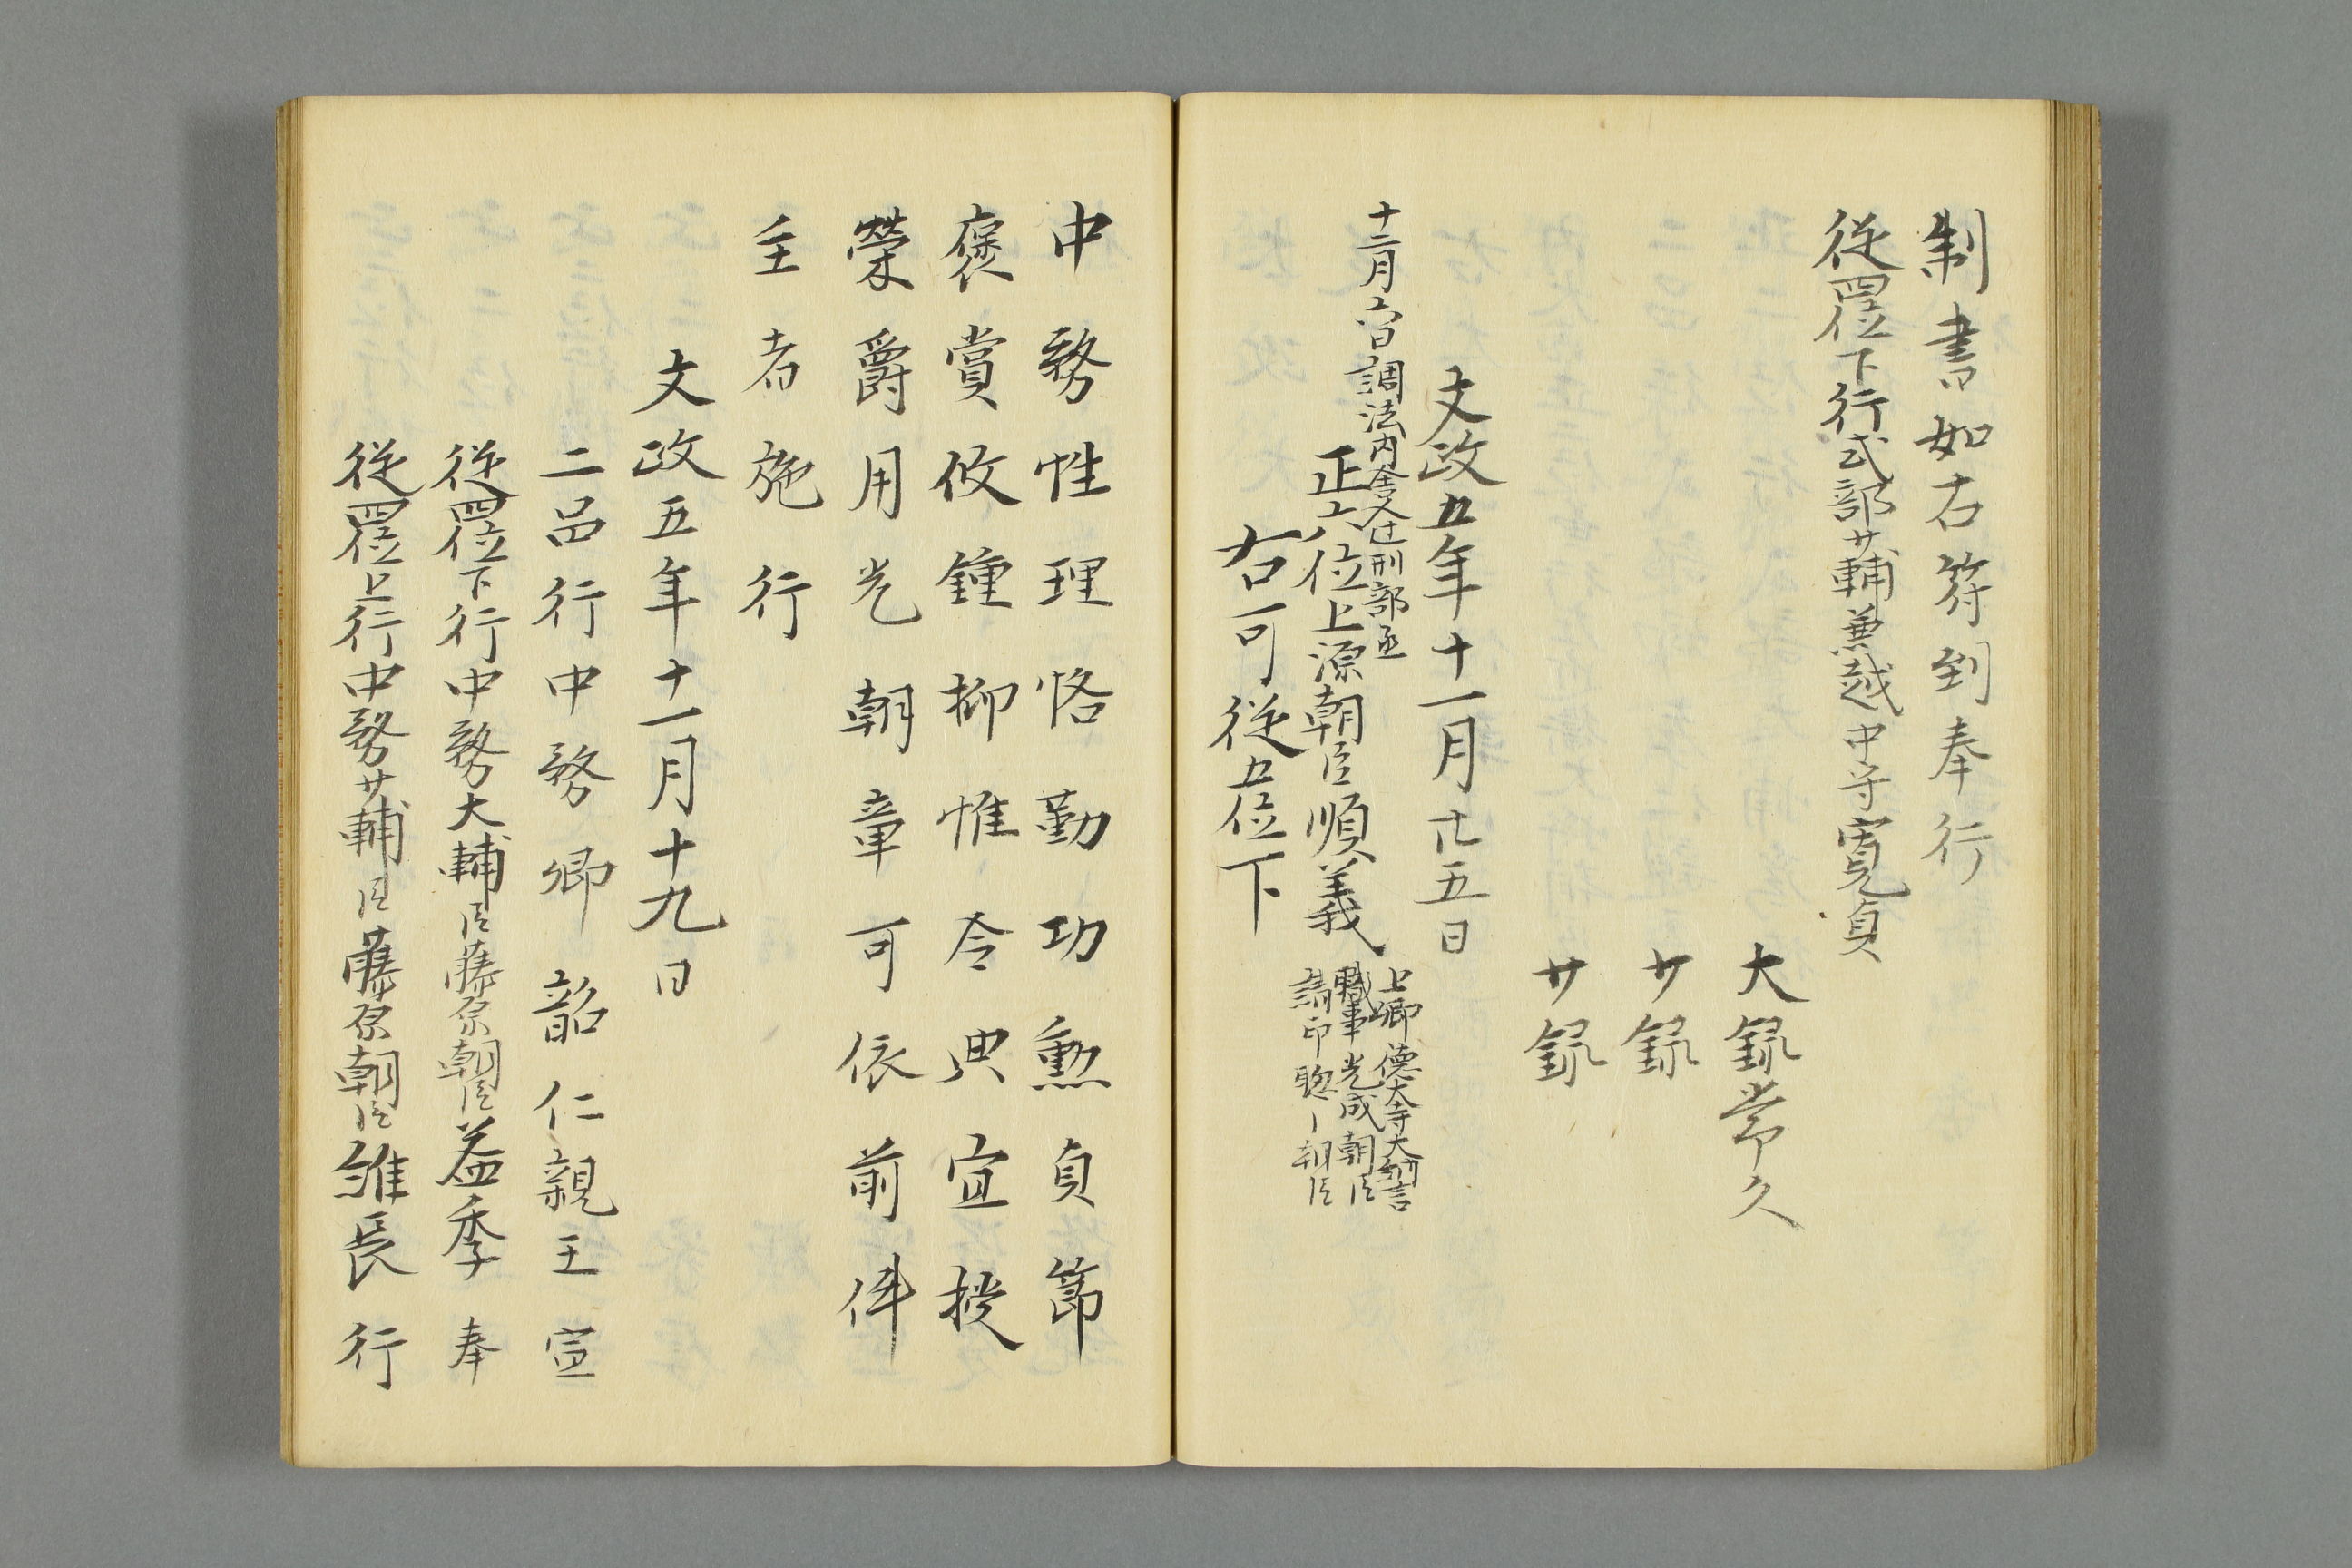 制書如右符到奉行
従四位下行式部少輔兼越中守寛貞
大録常久
少録
少録
文政五年十一月廿五日
十二月六日調法内舎人辻刑部丞
正六位上源朝臣順義
上卿 徳大寺大納言
職事 光成朝臣
請印 聡〻朝臣
右可従五位下
中務性理恪勤功勲貞節
褒賞攸鍾抑惟令典宜授
榮爵用光朝章可依前件
主者施行
文政五年十一月十九日
二品行中務卿韶仁親王宣
従四位下行中務大輔臣藤原朝臣益季奉
従四位上行中務少輔臣藤原朝臣維長行